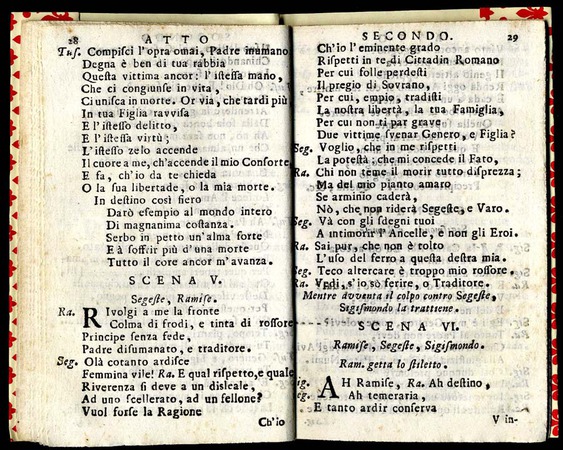 28 ATTO
Tus. Compisci l'opra omai, Padre inumano
Degna è ben di tua rabbia
Questa vittima ancor: l'istessa mano,
Che ci congiunse in vita,
Ci unisca in morte. Or via, che tardi più
In tua Figlia ravvisa
E l'istesso delitto,
E l'istessa virtù;
L'istesso zelo accende
Il cuore a me, ch'accende il mio Consorte
E fa, ch'io da te chieda
O la sua libertade, o la mia morte.
In destino così fiero
Darò esempio al mondo intero
Di magnanima costanza.
Serbo in petto un'alma forte
Ed à soffrir più d'una morte
Tutto il core ancor m'avanza.
SCENA V.
Segeste, Ramise.
Ra. Rivolgi a me la fronte
Colma di frodi, e tinta di rossore
Principe senza fede,
Padre disumanato, e traditore.
Seg. Olà cotanto ardisce
Femmina vile! Ra. E qual rispetto, e quale
Riverenza si deve a un disleale,
Ad uno scellerato, ad un fellone?
Vuol forse la Ragione
Ch'io
SECONDO. 29
Ch'io l'eminente grado
Rispetti in te di Cittadin Romano
Per cui folle perdesti
Il pregio di Sovrano,
Per cui, empio, tradisti
La nostra libertà, la tua Famiglia,
Per cui non ti par grave
Due vittime svenar Genero, e Figlia?
Seg. Voglio, che in me rispetti
La potestà; che mi concede il Fato,
Ra. Chi non teme il morir tutto disprezza;
Ma del mio pianto amaro
Se arminio caderà,
Nò, che non riderà Segeste, e Varo.
Seg. Và con gli sdegni tuoi
A intimorir l'Ancelle, e non gli Eroi.
Ra. Sai pur, che non è tolto
L'uso del ferro a questa destra mia.
Seg. Teco altercare è troppo mio rossore,
Ra. Vedi, s'io so ferire, o Traditore.
Mentre avventa il colpo contro Segeste,
Sigismondo la trattiene.
SCENA VI.
Ramise, Segeste, Sigismondo.
Ram. getta lo stiletto.
Sig. AH Ramise, Ra. Ah destino,
Seg. Ah temeraria,
E tanto ardir conserva
V in-